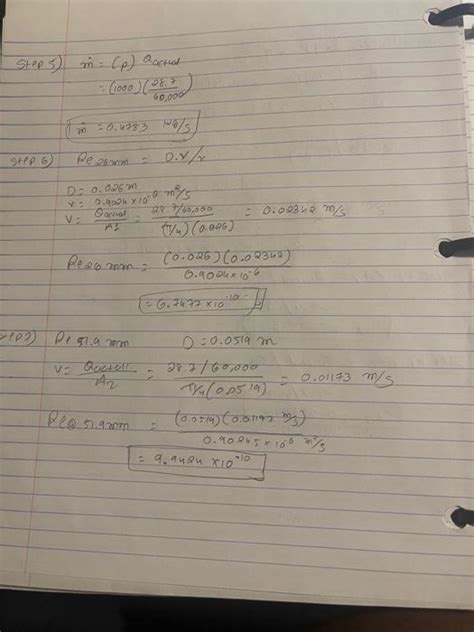 Step 5) ṁ = (ρ) Qactual
= (1000) (28.7/60,000)
ṁ = 0.4783 kg/s
Step 6) Re26mm = D.V/r
D = 0.026 m
r = 0.9024 x 10^-6 m²/s
V = Qactual/A1 = 28.7/60,000 / (π/4)(0.026) = 0.02342 m/s
Re26mm = (0.026)(0.02342) / 0.9024x10^-6
= 6.7477 x10^-10
Re 51.9mm D = 0.0519 m
V = Qactual/A2 = 28.7/60,000 / π/4(0.0519) = 0.01173 m/s
Re@ 51.9mm = (0.0519)(0.01173 m/s) / 0.90245 x10^-6 m²/s
= 9.9424 x10^-10